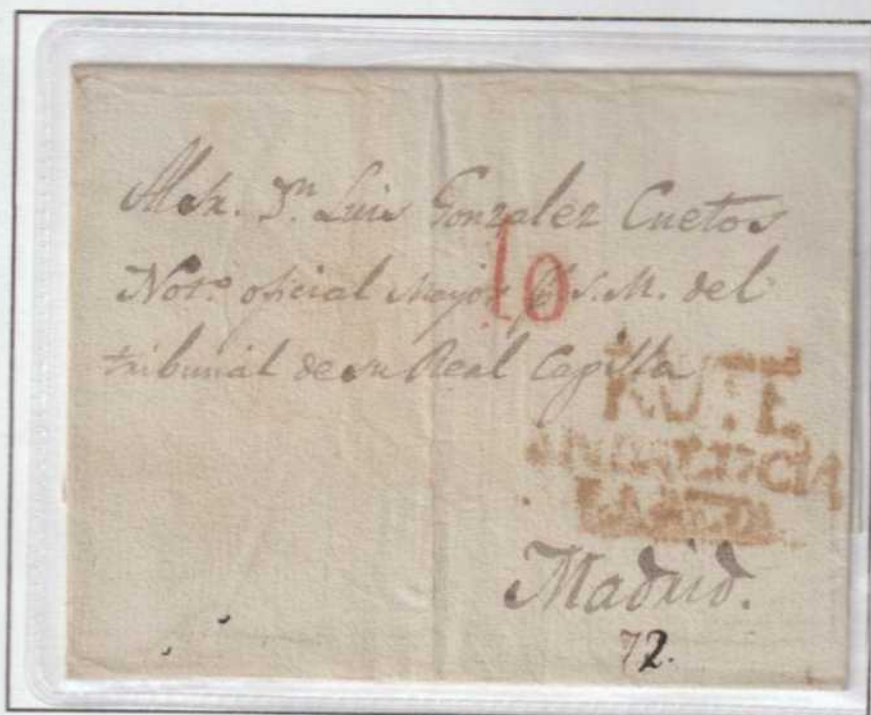 Al Sr. Dn. Luis Gonzalez Cuetos
10
Noto. oficial mayor pr. S.M. del
tribunal de su Real Capilla
RUTE
ANDALUCIA
BAXA
Madrid.
72.